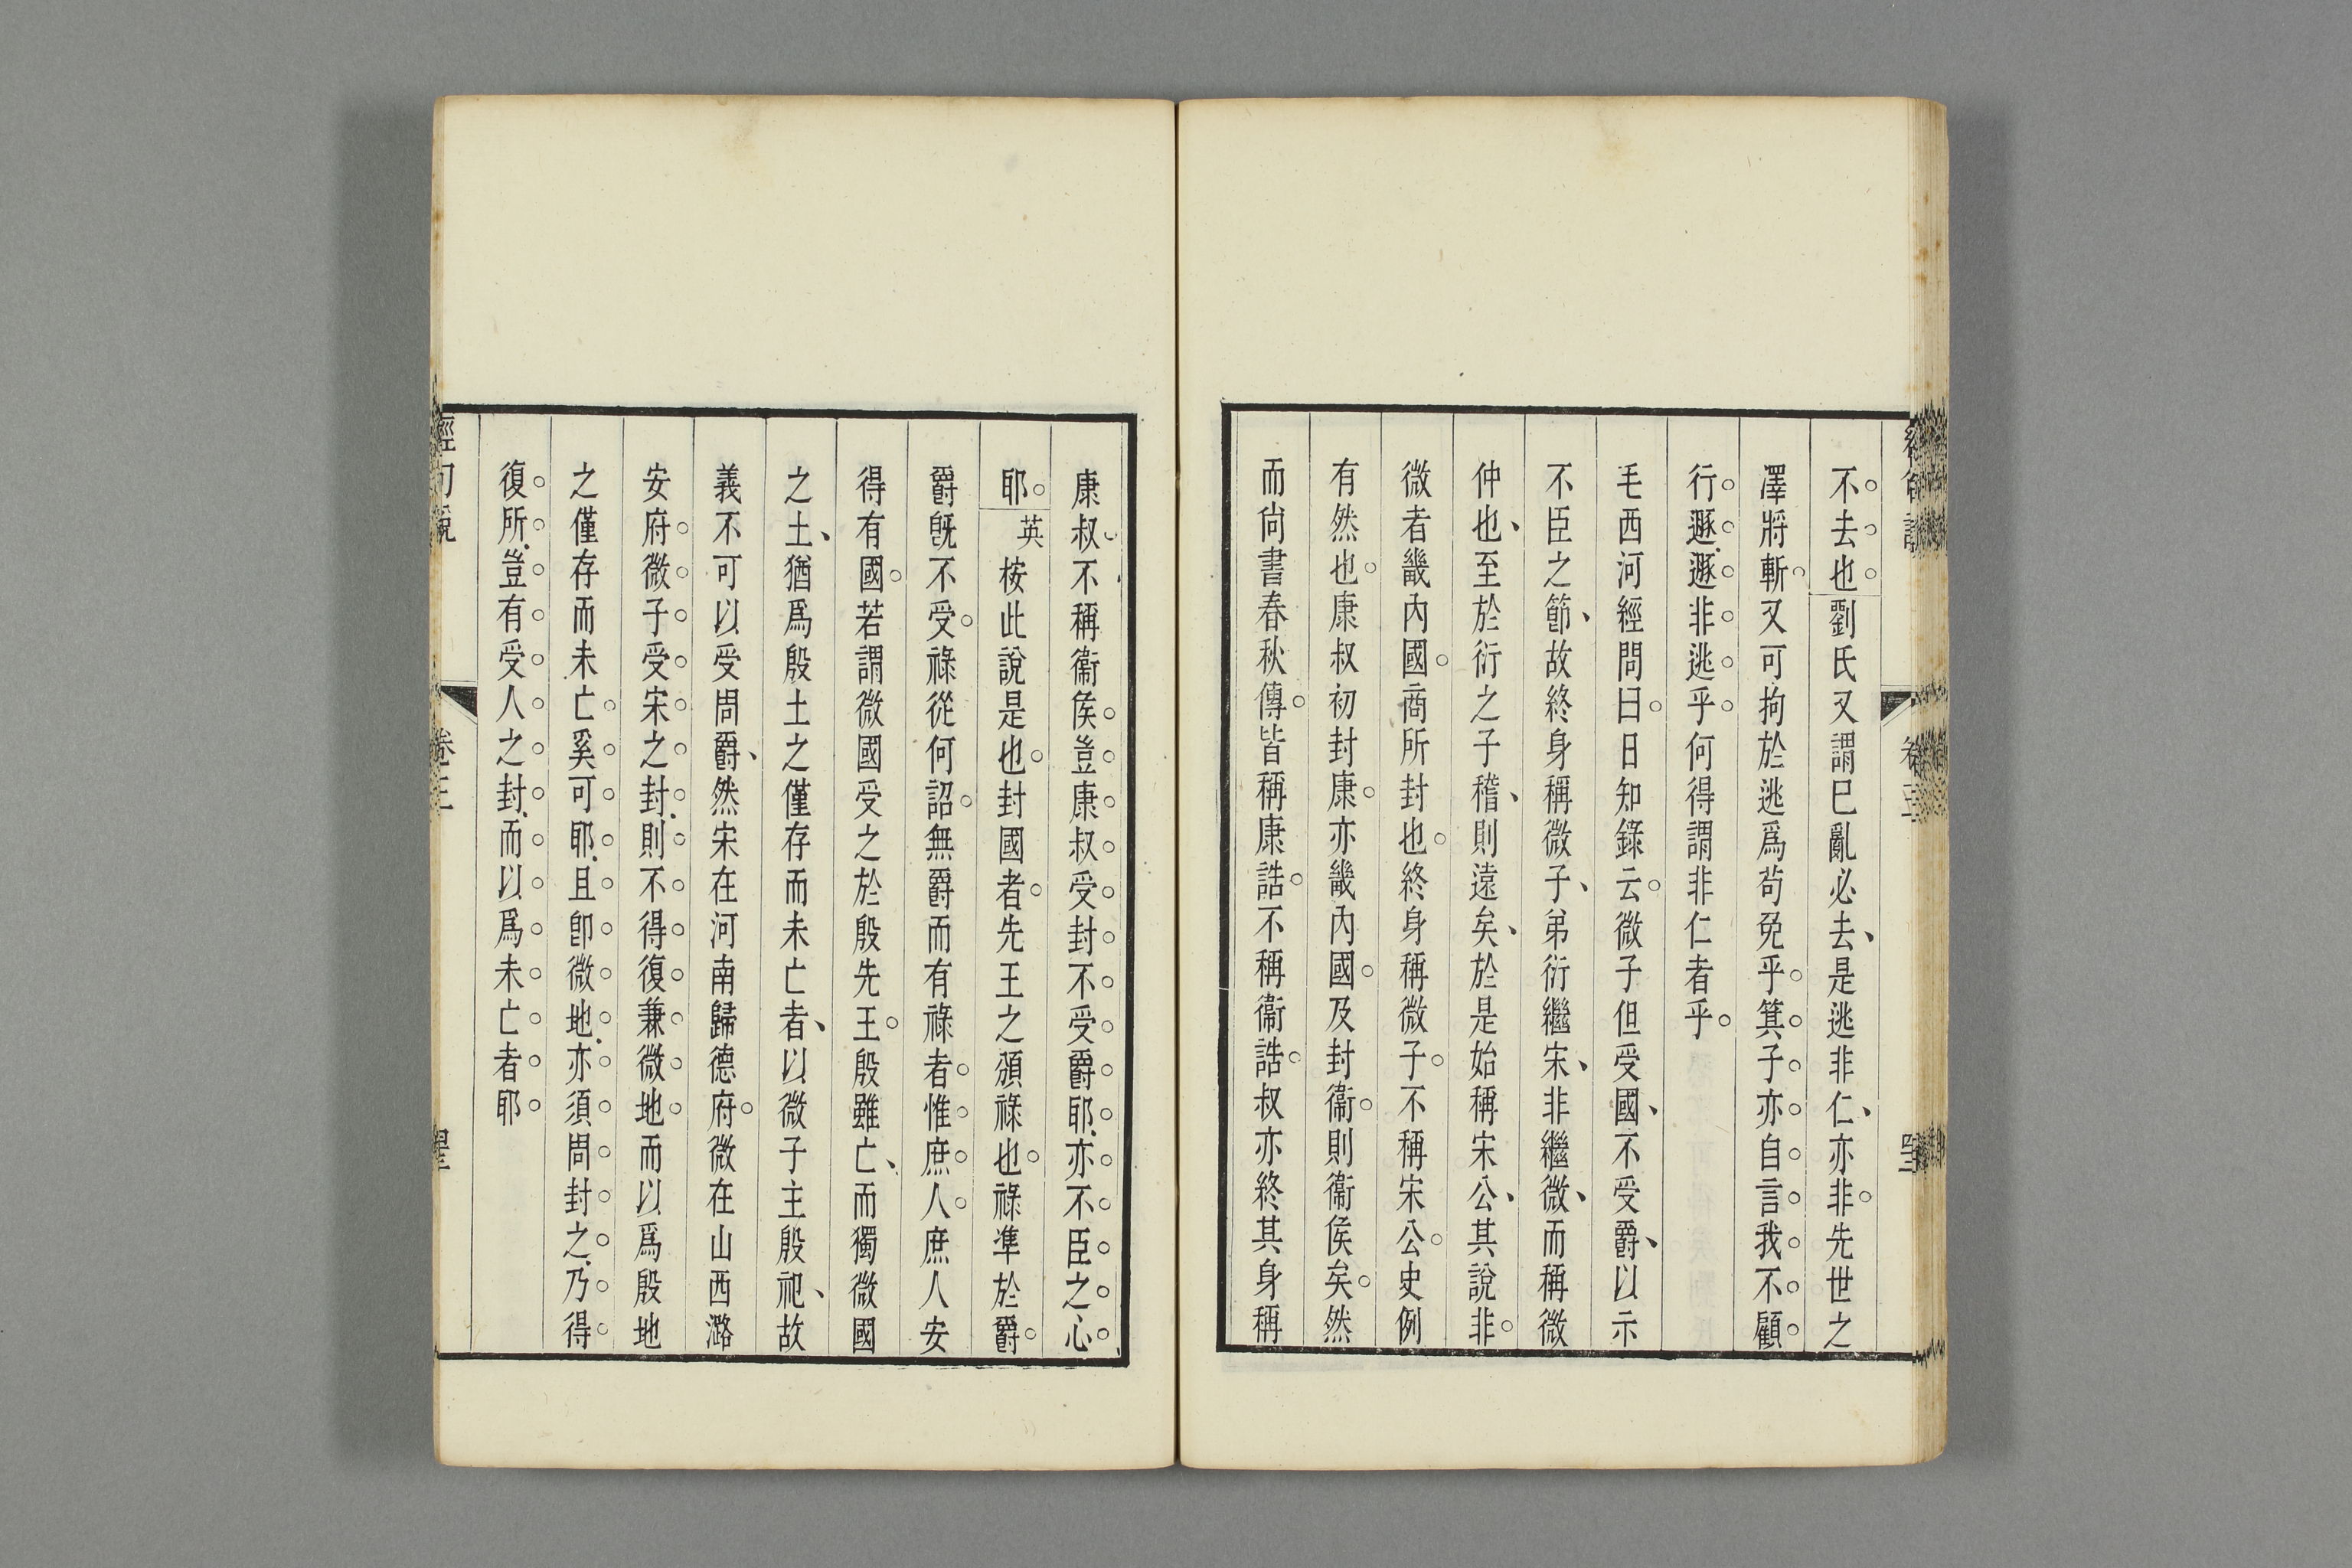 不去也劉氏又謂巳亂必去是逃非仁亦非先世之
澤將斬又可拘於逃爲茍免乎箕子亦自言我不顧
行遯遯非逃乎何得謂非仁者乎
毛西河經問曰日知錄云微子但受國不受爵以示
不臣之節故終身稱微子弟衍繼宋非繼微而稱微
仲也至於衍之子稽則遠矣於是始稱宋公其說非
微者畿內國商所封也終身稱微子不稱宋公史例
有然也康叔初封康亦畿內國及封衞則衞侯矣然
而尙書春秋傳皆稱康誥不稱衞誥叔亦終其身稱
康叔不稱衞侯豈康叔受封不受爵耶亦不臣之心
耶英按此說是也封國者先王之頒祿也祿準於爵
爵旣不受祿從何詔無爵而有祿者惟庶人庶人安
得有國若謂微國受之於殷先王殷雖亡而獨微國
之土猶爲殷土之僅存而未亡者以微子主殷祀故
義不可以受周爵然宋在河南歸德府微在山西潞
安府微子受宋之封則不得復兼微地而以爲殷地
之僅存而未亡奚可耶且卽微地亦須周封之乃得
復所豈有受人之封而以爲未亡者耶
經句說
卷三